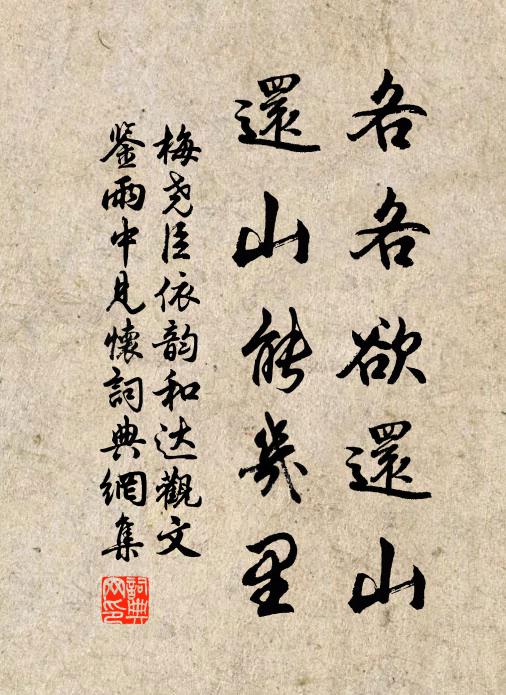 各各欲還山
還山能幾里
梅尧臣依韵和达觀文
鉴雨中見懷詞典網集
詞典網印